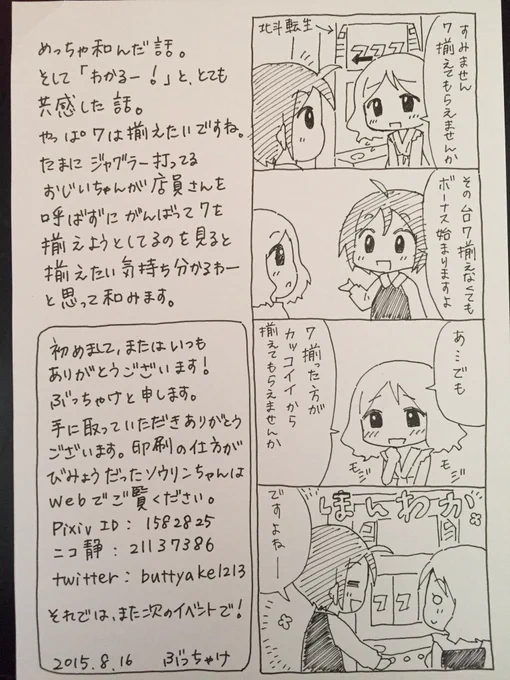 めっちゃ和んだ話。
そして「わかるー!」と、とても
共感した話。
やっぱ7は揃えたいですね。
たまにジャグラー打ってる
おじいちゃんが店員さんを
呼ばずにがんばって7を
揃えようとしてるのを見ると
揃えたい気持ち分かるわー
と思って和みます。
初めまして、またはいつも
ありがとうございます!
ぶっちゃけと申します。
手に取っていただきありがとう
ございます。印刷の仕方が
びみょうだったソウリンちゃんは
Webでご覧ください。
Pixiv ID : 1582825
ニコ静 : 21137386
twitter : buttyake1213
それでは、また次のイベントで!
2015.8.16 ぶっちゃけ
北斗転生
777
すみません
7揃えてもらえませんか
その台7揃えなくても
ボーナス始まりますよ
あ…でも
7揃った方が
カッコイイから
揃えてもらえませんか
モジ
モジ
ほんわか
77
ですよねー